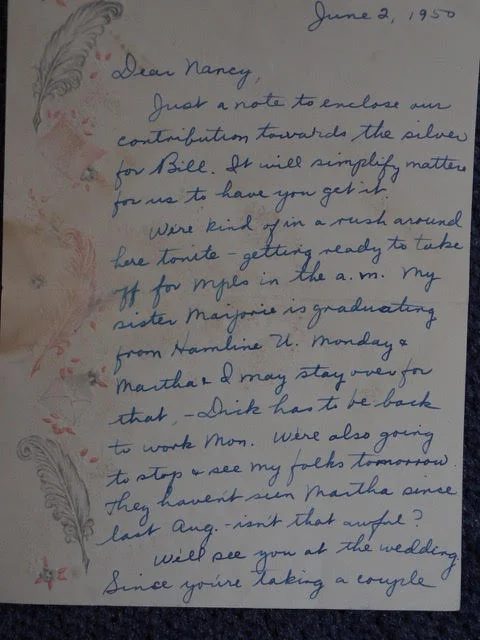 June 2, 1950
Dear Nancy,
Just a note to enclose our
contribution towards the silver
for Bill. It will simplify matters
for us to have you get it.
We're kind of in a rush around
here tonite - getting ready to take
off for Mpls in the a.m. My
sister Marjorie is graduating
from Hamline U. Monday &
Martha & I may stay over for
that, - Dick has to be back
to work Mon. We're also going
to stop & see my folks tomorrow.
They haven't seen Martha since
last Aug. - isn't that awful?
We'll see you at the wedding.
Since you're taking a couple